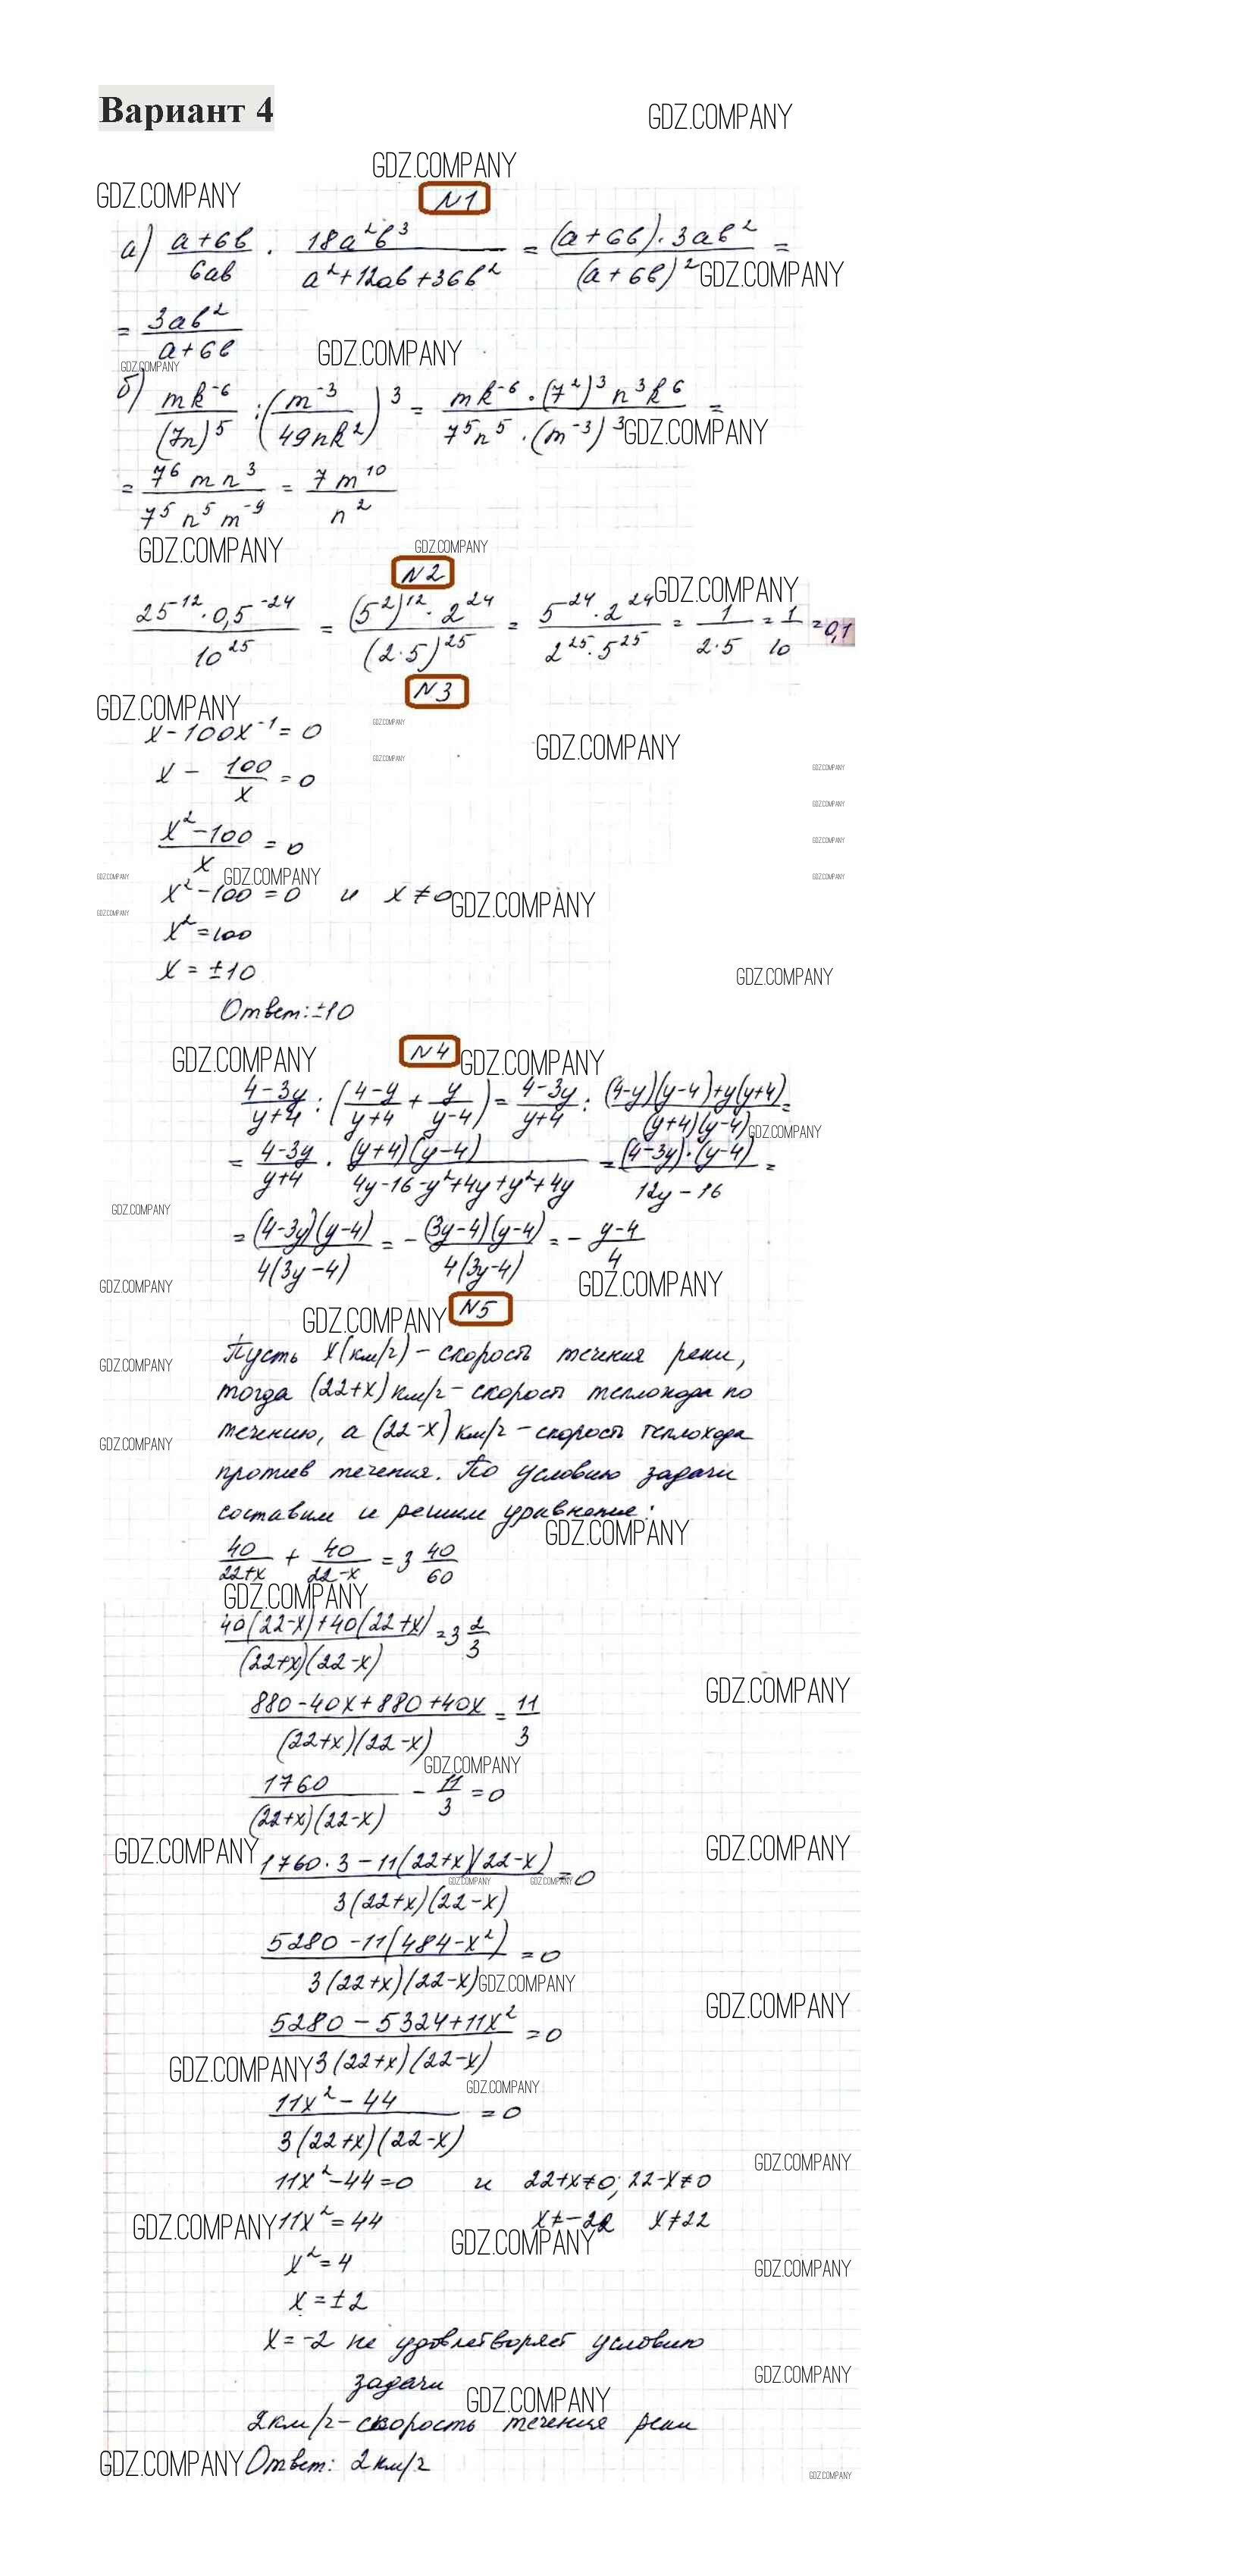 Вариант 4
GDZ.COMPANY
GDZ.COMPANY
GDZ.COMPANY
N1
а) (a+6b)/(6ab) · (18a²b³)/(a²+12ab+36b²) = ((a+6b)·3ab²)/((a+6b)²) =
GDZ.COMPANY
= (3ab²)/(a+6b)
GDZ.COMPANY
GDZ.COMPANY
б) (mk⁻⁶)/((7n)⁵) : ((m⁻³)/(49nk²))³ = (mk⁻⁶·(7²)³n³k⁶)/(7⁵n⁵·(m⁻³)³) =
GDZ.COMPANY
= (7⁶mn³)/(7⁵n⁵m⁻⁹) = (7m¹⁰)/(n²)
GDZ.COMPANY
GDZ.COMPANY
N2
GDZ.COMPANY
(25⁻¹²·0,5⁻²⁴)/(10²⁵) = ((5²)¹²·2²⁴)/((2·5)²⁵) = (5⁻²⁴·2²⁴)/(2²⁵·5²⁵) = 1/(2·5) = 1/10 = 0,1
N3
GDZ.COMPANY
GDZ.COMPANY
x-100x⁻¹=0
GDZ.COMPANY
GDZ.COMPANY
GDZ.COMPANY
x - 100/x = 0
GDZ.COMPANY
(x²-100)/x = 0
GDZ.COMPANY
GDZ.COMPANY
GDZ.COMPANY
GDZ.COMPANY
x²-100=0 и x≠0
GDZ.COMPANY
GDZ.COMPANY
x²=100
x=±10
GDZ.COMPANY
Ответ: ±10
N4
GDZ.COMPANY
GDZ.COMPANY
(4-3y)/(y+4) : ((4-y)/(y+4) + y/(y-4)) = (4-3y)/(y+4) : ((4-y)(y-4)+y(y+4))/((y+4)(y-4)) =
GDZ.COMPANY
= (4-3y)/(y+4) · ((y+4)(y-4))/(4y-16-y²+4y+y²+4y) = ((4-3y)·(y-4))/(12y-16) =
GDZ.COMPANY
= ((4-3y)(y-4))/(4(3y-4)) = -((3y-4)(y-4))/(4(3y-4)) = -(y-4)/4
GDZ.COMPANY
GDZ.COMPANY
GDZ.COMPANY
N5
Пусть x (км/ч) - скорость течения реки,
GDZ.COMPANY
тогда (22+x) км/ч - скорость теплохода по
течению, а (22-x) км/ч - скорость теплохода
GDZ.COMPANY
против течения. По условию задачи
составим и решим уравнение:
GDZ.COMPANY
40/(22+x) + 40/(22-x) = 3 40/60
GDZ.COMPANY
(40(22-x)+40(22+x))/((22+x)(22-x)) = 3 2/3
GDZ.COMPANY
(880-40x+880+40x)/((22+x)(22-x)) = 11/3
GDZ.COMPANY
1760/((22+x)(22-x)) - 11/3 = 0
GDZ.COMPANY
GDZ.COMPANY
(1760·3-11(22+x)(22-x))/(3(22+x)(22-x)) = 0
GDZ.COMPANY
GDZ.COMPANY
(5280-11(484-x²))/(3(22+x)(22-x)) = 0
GDZ.COMPANY
GDZ.COMPANY
(5280-5324+11x²)/(3(22+x)(22-x)) = 0
GDZ.COMPANY
GDZ.COMPANY
(11x²-44)/(3(22+x)(22-x)) = 0
GDZ.COMPANY
11x²-44=0 и 22+x≠0; 22-x≠0
GDZ.COMPANY
11x²=44 x≠-22 x≠22
GDZ.COMPANY
x²=4
GDZ.COMPANY
x=±2
x=-2 не удовлетворяет условию
задачи
GDZ.COMPANY
GDZ.COMPANY
2км/ч - скорость течения реки
GDZ.COMPANY
Ответ: 2км/ч
GDZ.COMPANY